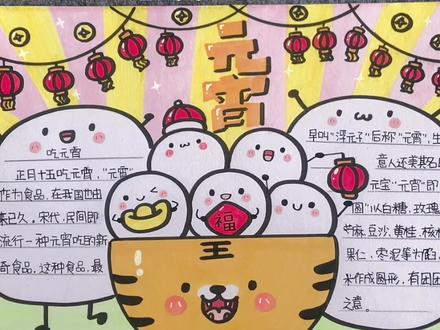 元宵
吃元宵
正月十五吃元宵,"元宵"
作为食品,在我国也由
来已久,宋代,民间即
流行一种元宵吃的新
奇食品,这种食品,最
福
王
早叫"浮元子"后称"元宵",生
意人还美其名曰
元宝"元宵"即"
圆"以白糖、玫瑰
芝麻、豆沙、黄桂、核桃
果仁、枣泥等为馅,
米作成圆形,有团圆
之意。